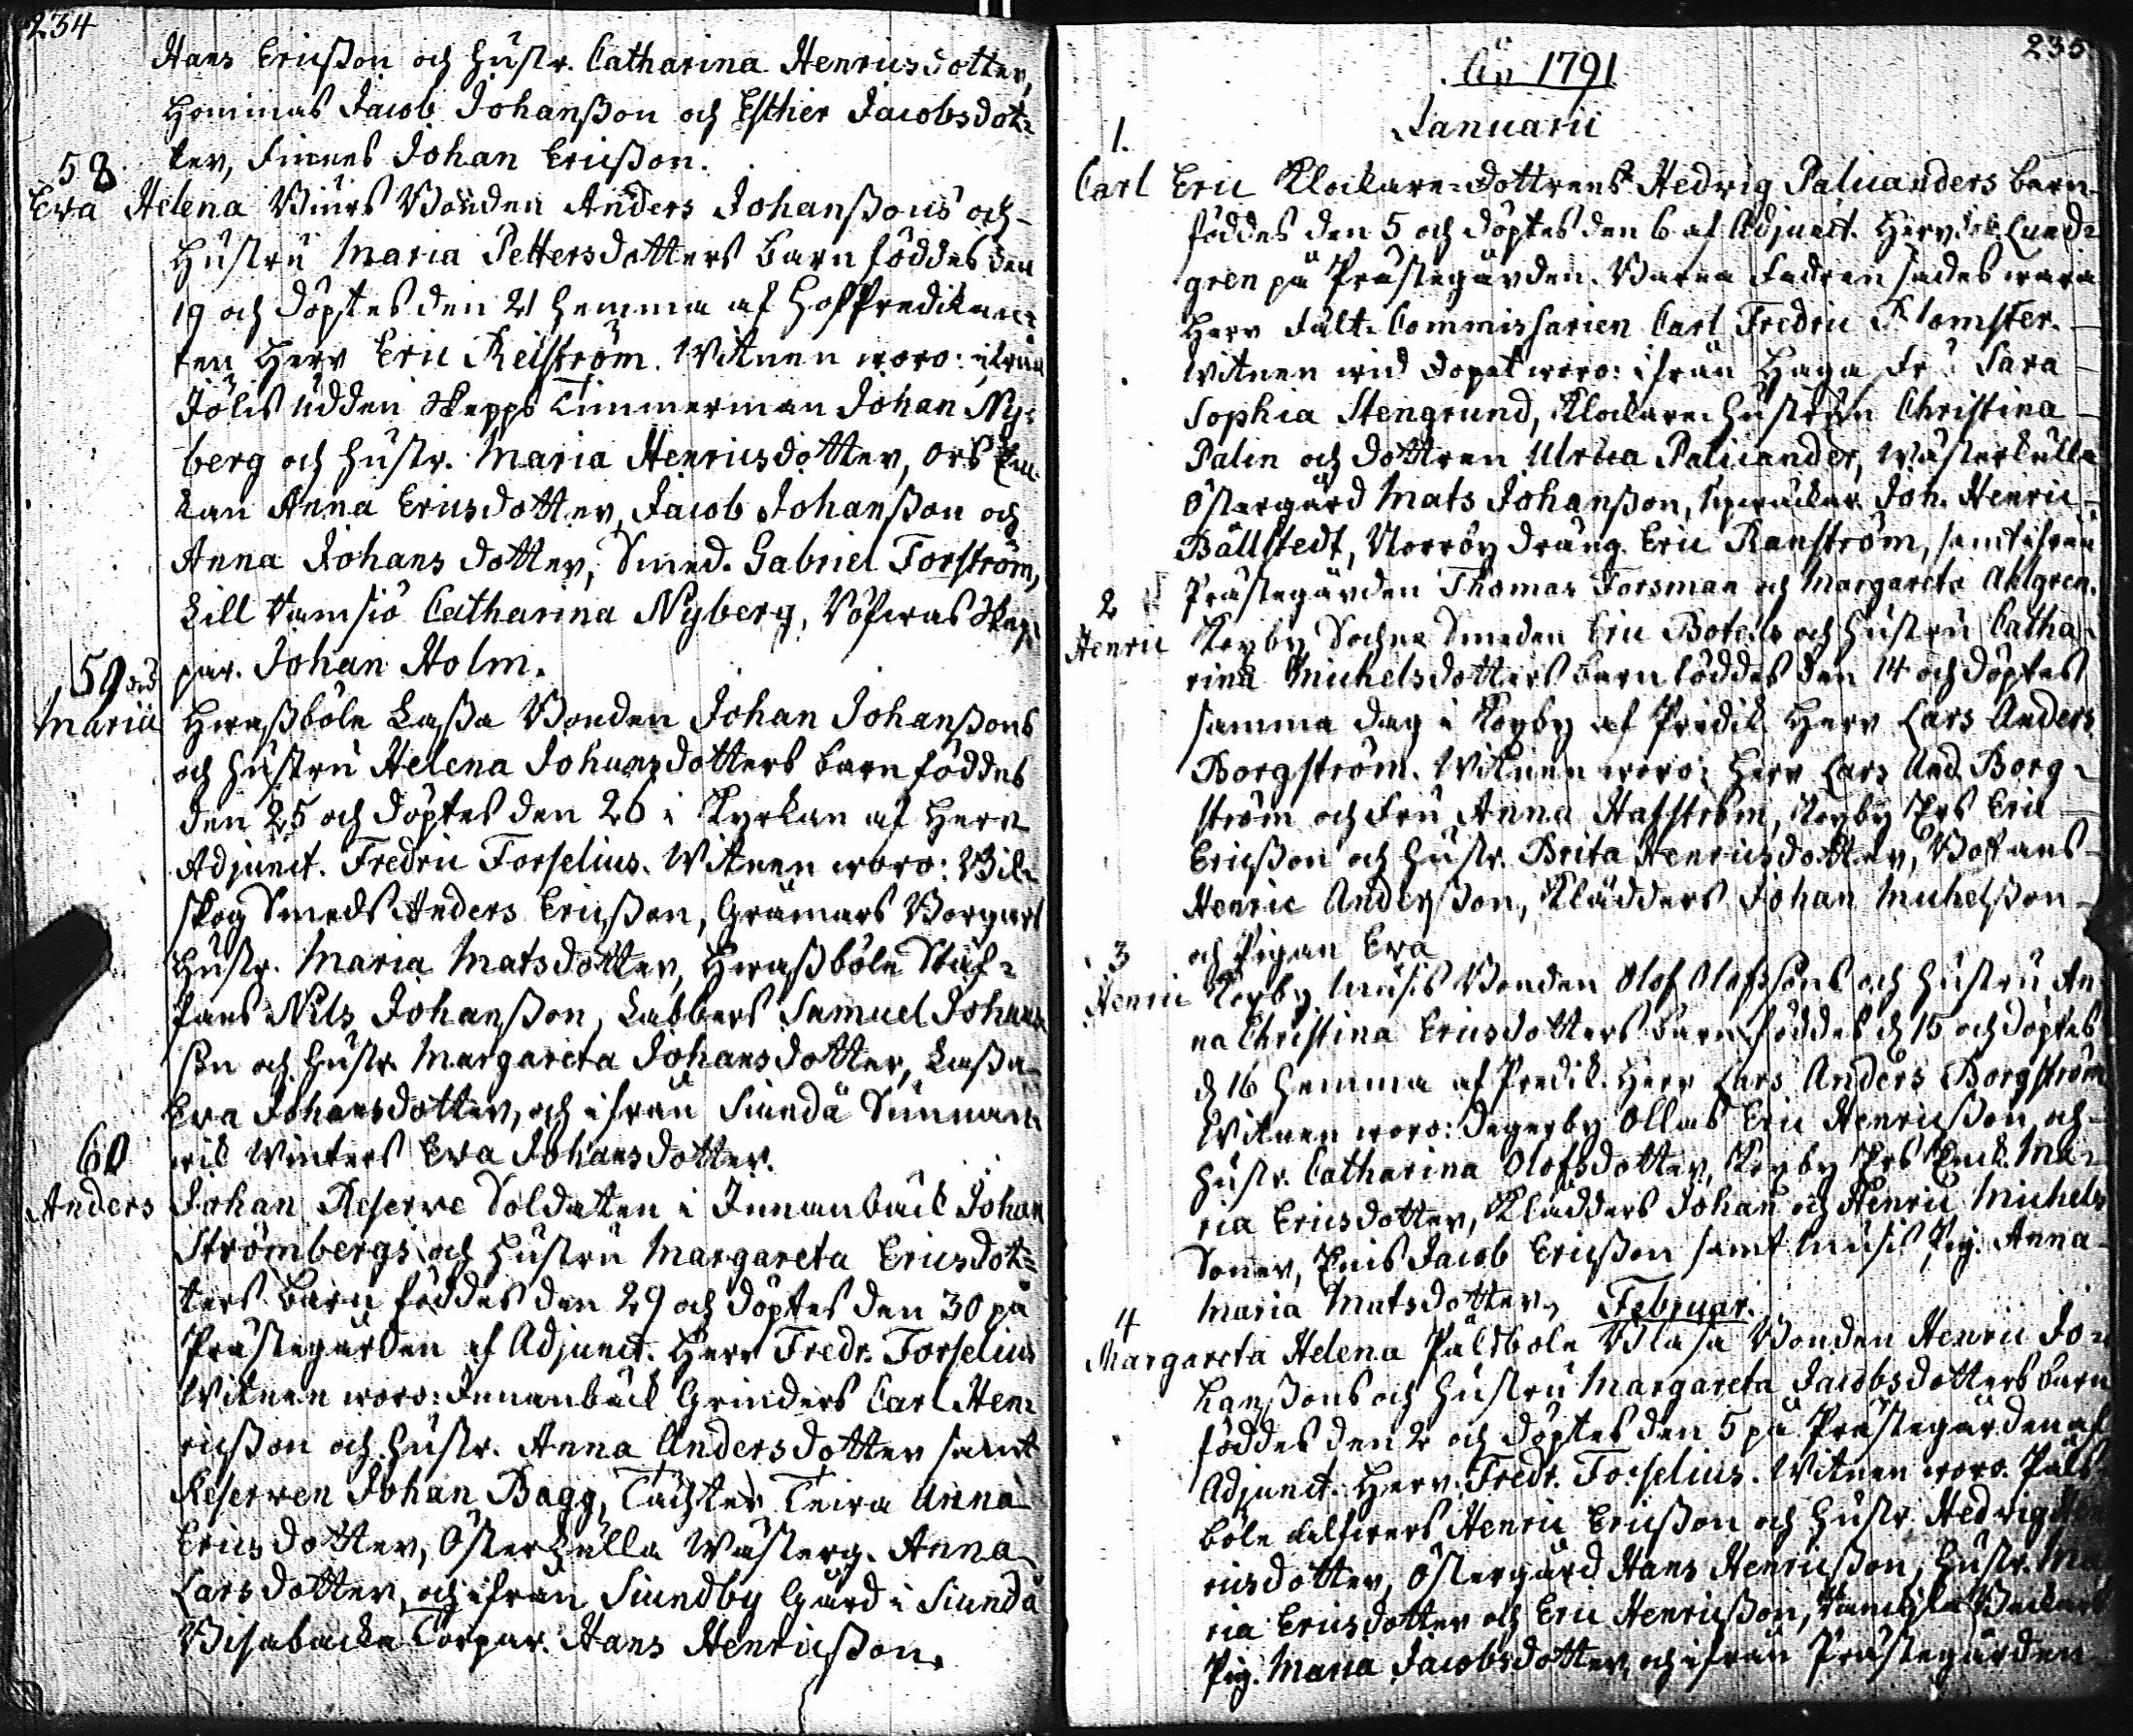 234
Hans Ericßon och Hustr. Catharina Henricsdotter,
Hommas Jacob Johanßon och Esther Jacobsdot-
ter, Finnes Johan Ericßon.
58.
Eva Helena Bonden Anders Johanßons och
Hustru Maria Pettersdotters barn föddes den
19 och döptes den 21 hemma af HofPredikan-
ten Herr Eric Reiström. Witnen woro: ifrån
udden Skepps Timmerman Johan Ny-
berg och Hustr. Maria Henricsdotter, Ors En-
kan Anna Ericsdotter, Jacob Johanßon och
Anna Johansdotter, Smed. Gabriel Forström,
Lill Catharina Nyberg, Skep-
par. Johan Holm.
59
Maria Lassa Bonden Johan Johanßons
och Hustru Helena Johansdotters barn föddes
den 25 och döptes den 26 i Kyrkan af Herr
Adjunct. Fredric Forselius. Witnen woro:
skog Smeds Anders Ericßon,
Hustr. Maria Matsdotter, Staf-
fans Nils Johanßon, Labbers Samuel Johans-
son och Hustr. Margareta Johansdotter, Lassa
Eva Johansdotter, och ifrån Siundå Sunnan-
wik Winters Eva Johansdotter.
60
Anders Johan Reserve Soldaten i Innanbäck Johan
Strömbergs och Hustru Margareta Ericsdot-
ters barn föddes den 29 och döptes den 30 på
Prästegården af Adjunct. Herr Fredr. Forselius
Witnen woro: Innanbäck Grinders Carl Hen-
ricßon och Hustr. Anna Andersdotter samt
Reserven Johan Bagg, Täckter Anna
Ericsdotter, Österkulla Wästerg. Anna
Larsdotter, och ifrån Siundby Gård i Siundå
Torpar. Hans Henricßon.
235
Ao 1791
Januarii
1.
Carl Eric Klockare-dottrens Hedvig Palicanders barn
föddes den 5 och döptes den 6 af Adjunct. Herr Lund-
gren på Prästegården. Barna Fadren sades wara
Herr Fält-Commissarien Carl Fredric Blomster.
Witnen wid dopet woro: ifrån Haga Fr: Sara
Sophia Stengrund, Klockare Hustrun Christina
Palin och dottren Ulrica Palicander, Wästerkulla
Östergård Mats Johanßon, Joh. Henric
Bällstedt, Norrby dräng. Eric Ranström, samt ifrån
Prästegården Thomas Forsman och Margareta Ahlgren.
2
Henric Koxby Sockne Smeden Eric Botells och Hustru Catha-
rina Michelsdotters barn föddes den 14 och döptes
samma dag i Koxby af Predik. Herr Lars Anders
Borgström. Witnen woro: Herr Lars And. Borg-
ström och Fru Anna Hafström, Koxby Ers Eric
Ericßon och Hustr. Brita Henricsdotter, Bossans
Henric Andersßon, Klädders Johan Michelßon
och Pigan Eva
3
Henric Koxby Musis Bonden Olof Olofssons och Hustru An-
na Christina Ericsdotters barn föddes d 15 och döptes
d 16 hemma af Predik. Herr Lars Anders Borgström
Witnen woro: Degerby Ollas Eric Henricßon och
Hustr. Catharina Olofsdotter, Koxby Ers Enk. Ma-
ria Ericsdotter, Klädders Johan och Henric Michels
Söner, Jacob Ericßon samt Musis Pig. Anna
Maria Matsdotter.
Februar.
4
Margareta Helena Pålsböle Blasa Bonden Henric Jo-
hanßons och Hustru Margareta Jacobsdotters barn
föddes den 2 och döptes den 5 på Prästegården af
Adjunct. Herr Fredr. Forselius. Witnen woro. Påls-
böle Henric Ericßon och Hustr. Hedvig Hen-
ricsdotter, Östergård Hans Henricßon, Hustr. Ma-
ria Ericsdotter och Eric Henricßon,
Pig. Maria Jacobsdotter, och ifrån Prästegården